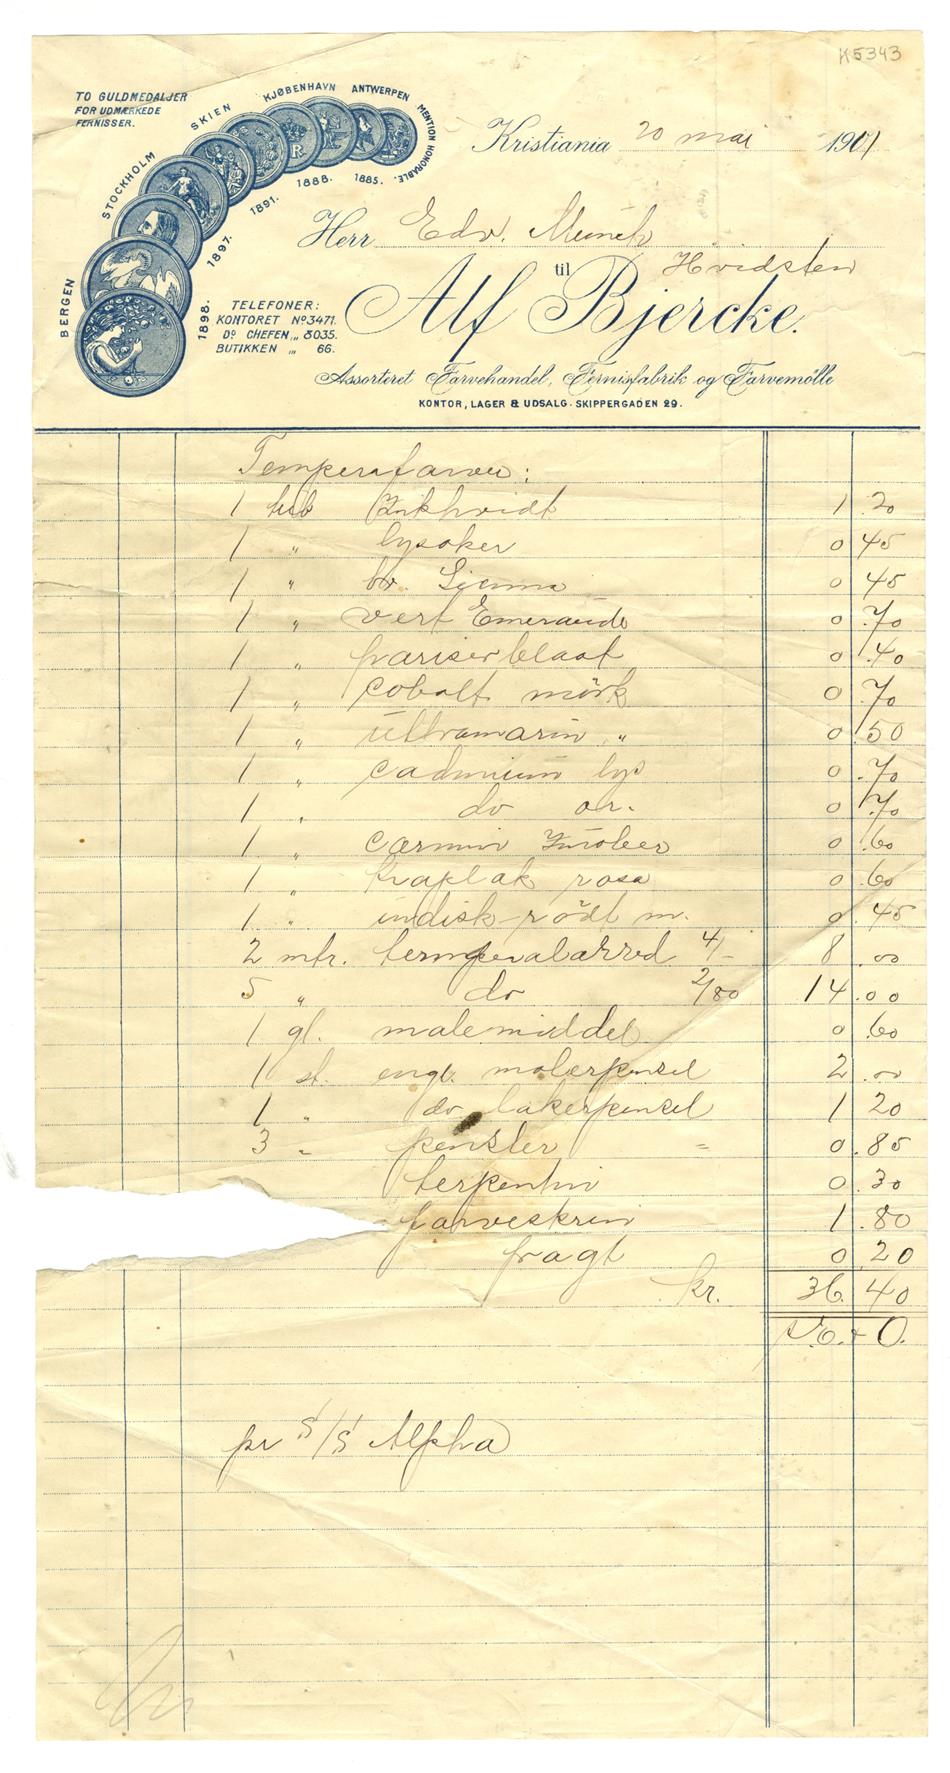 K5343
TO GULDMEDALJER
FOR UDMÆRKEDE
FERNISSER.
BERGEN
STOCKHOLM
SKIEN
KJØBENHAVN
ANTWERPEN
MENTION HONORABLE.
1898.
1897.
1891.
1888.
1885.
Kristiania 20 mai 1901
Herr Edv. Munch
Hvidsten
til
Alf Bjercke.
TELEFONER:
KONTORET No 3471.
Do CHEFEN „ 8035.
BUTIKKEN „ 66.
Assorteret Farvehandel, Fernisfabrik og Farvemølle
KONTOR, LAGER & UDSALG. SKIPPERGADEN 29.
Temperafarver:
1 tub Zinkhvidt 1.20
1 „ lysoker 0.45
1 „ br. Sienna 0.45
1 „ vert Emeraude 0.70
1 „ pariserblaat 0.40
1 „ cobolt mörk 0.70
1 „ ultramarin „ 0.50
1 „ cadmium lys 0.70
1 „ do or. 0.70
1 „ carmin Zinober 0.60
1 „ kraplak rosa 0.60
1 „ indisk-rödt m. 0.45
2 mtr. temperalærred 4/- 8.00
5 „ do 2/80 14.00
1 gl. malemiddel 0.60
1 st. engl. malerpensel 2.00
1 „ do lakerpensel 1 20
3 „ pensler = 0.85
terpentin 0.30
farveskrin 1.80
fragt 0 20
kr. 36.40
pr S/S Alpha